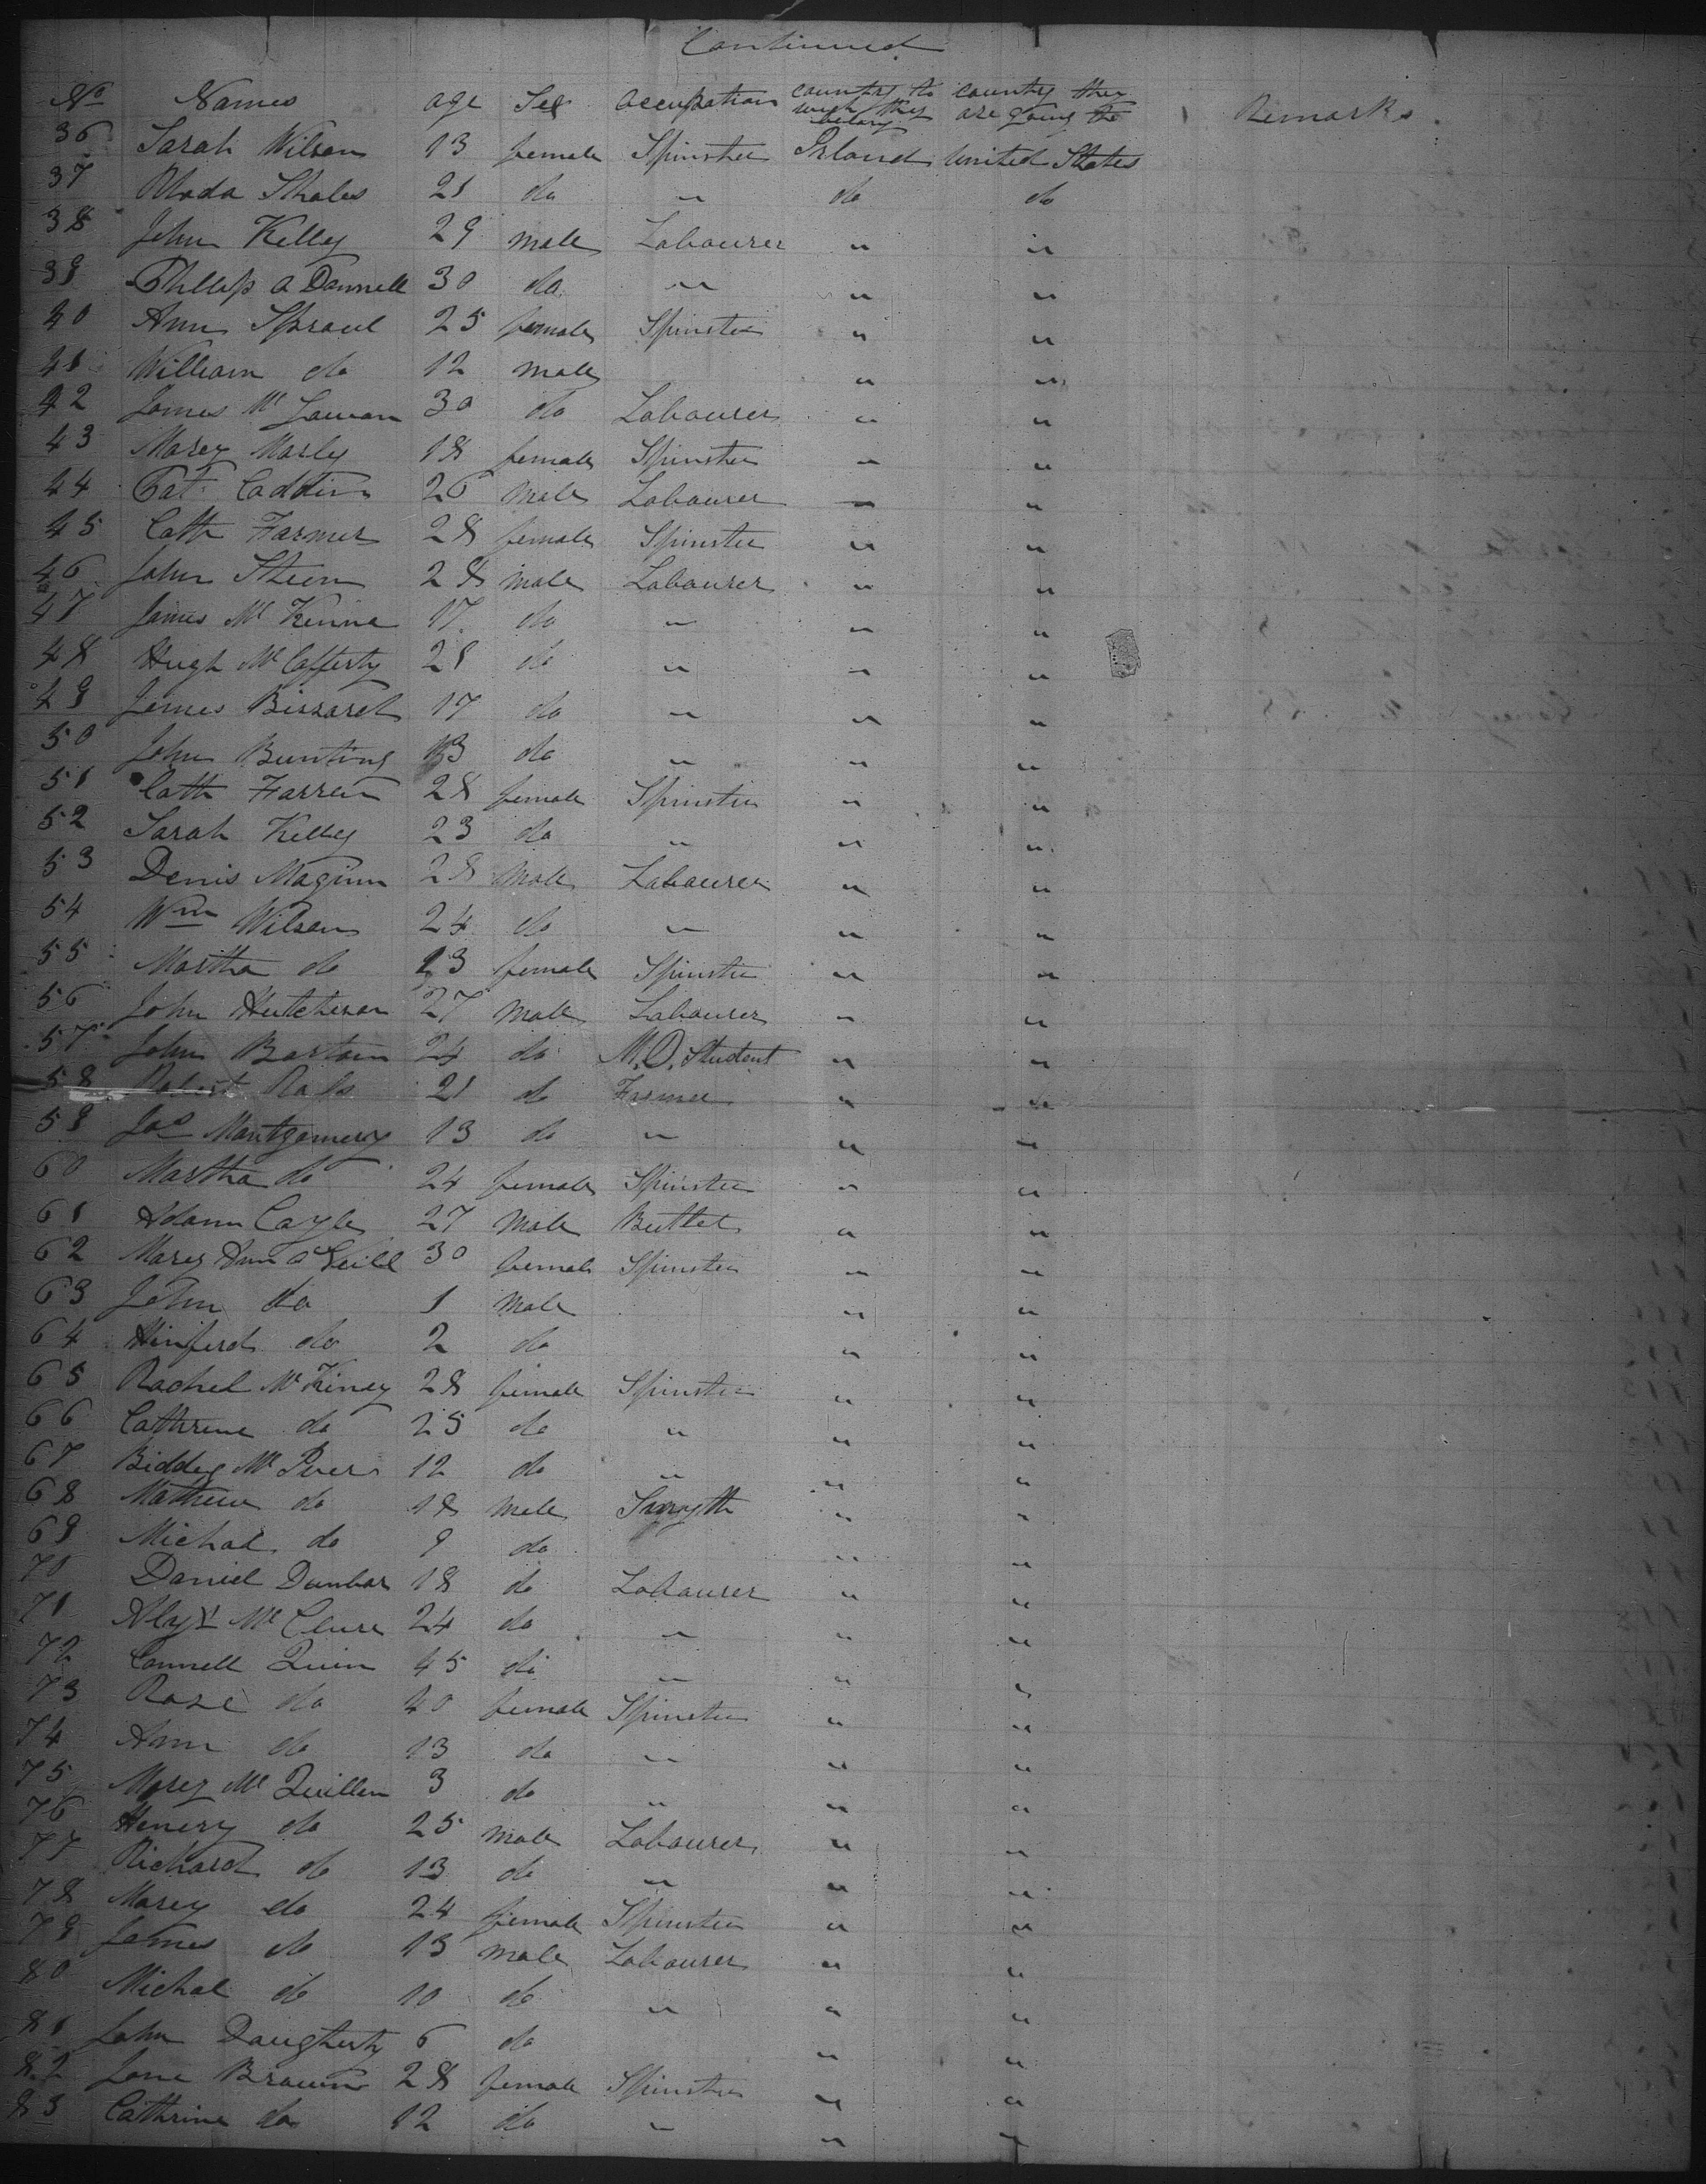 Continued
No Names age Sex Occupation country to wich they belong country they are going to Remarks
36 Sarah Wilson 13 female Spinster Irland United States
37 Rhoda Shales 21 do " do do
38 John Kelley 29 male Labourer " "
39 Phillip O Donnell 30 do " " "
40 Ann Sproul 25 female Spinster " "
41 William do 12 male " "
42 James Mc 30 do Labourer " "
43 Marey Marly 18 female Spinster " "
44 Pat Caddin 26 male Labourer " "
45 Cath Farmer 28 female Spinster " "
46 John Steen 28 male Labourer " "
47 James Mc Kenna 17 do " " "
48 Hugh Mc Cafferty 21 do " " "
49 James 17 do " " "
50 John Bunting 13 do " " "
51 Cath Farren 28 female Spinster " "
52 Sarah Kelley 23 do " " "
53 Denis Maginn 28 male Labourer " "
54 Wm Wilson 24 do " " "
55 Martha do 13 female Spinster " "
56 John Hutcheson 27 male Labourer " "
57 John 24 do M.D. Student " "
58 Robert Ross 21 do Farmer " "
59 Jas Montgomery 13 do " " "
60 Martha do 24 female Spinster " "
61 Adam Cayle 27 male Butler " "
62 Marey Ann O Neill 30 female Spinster " "
63 John do 1 male " "
64 do 2 do " "
65 Rachel Mc Kiney 28 female Spinster " "
66 Cathrine do 25 do " " "
67 Biddey Mc 12 do " " "
68 Mathew do 18 male Smyth " "
69 Michal do 9 do " "
70 Daniel Dunbar 18 do Labourer " "
71 Mc Clure 24 do " " "
72 Connell Quin 45 do " " "
73 Rose do 40 female Spinster " "
74 Ann do 13 do " " "
75 Marey Mc Quillen 3 do " " "
76 Henery do 25 male Labourer " "
77 Richard do 13 do " " "
78 Marey do 24 female Spinster " "
79 James do 13 male Labourer " "
80 Michal do 10 do " " "
81 John Daugherty 6 do " "
82 Jane Brown 28 female Spinster " "
83 Cathrine do 12 do " " "